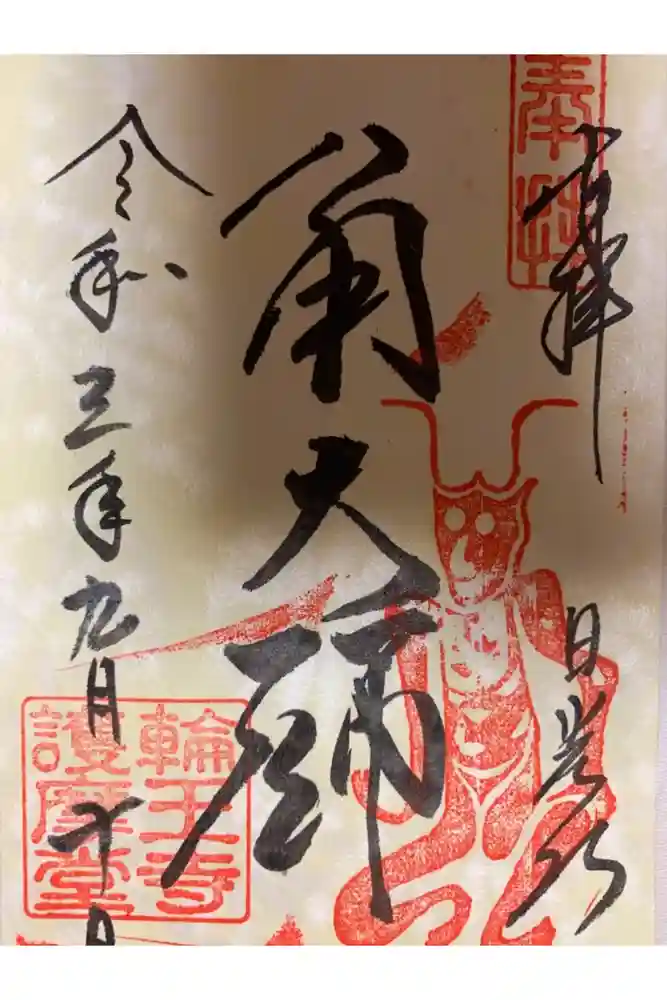 奉拝
奉拝
日光山
角大師
輪王寺
護摩堂
令和三年九月十日